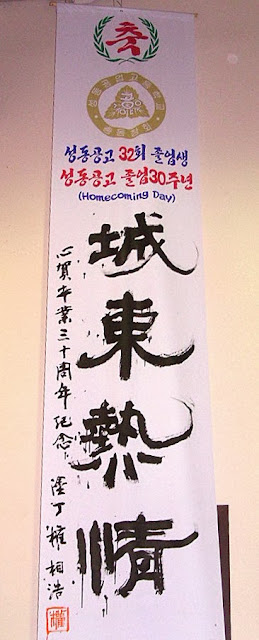 축
성동공고 32회 졸업생
성동공고 졸업30주년
(Homecoming Day)
城東熱情
心賀卒業三十周年紀念
塗丁 權相浩